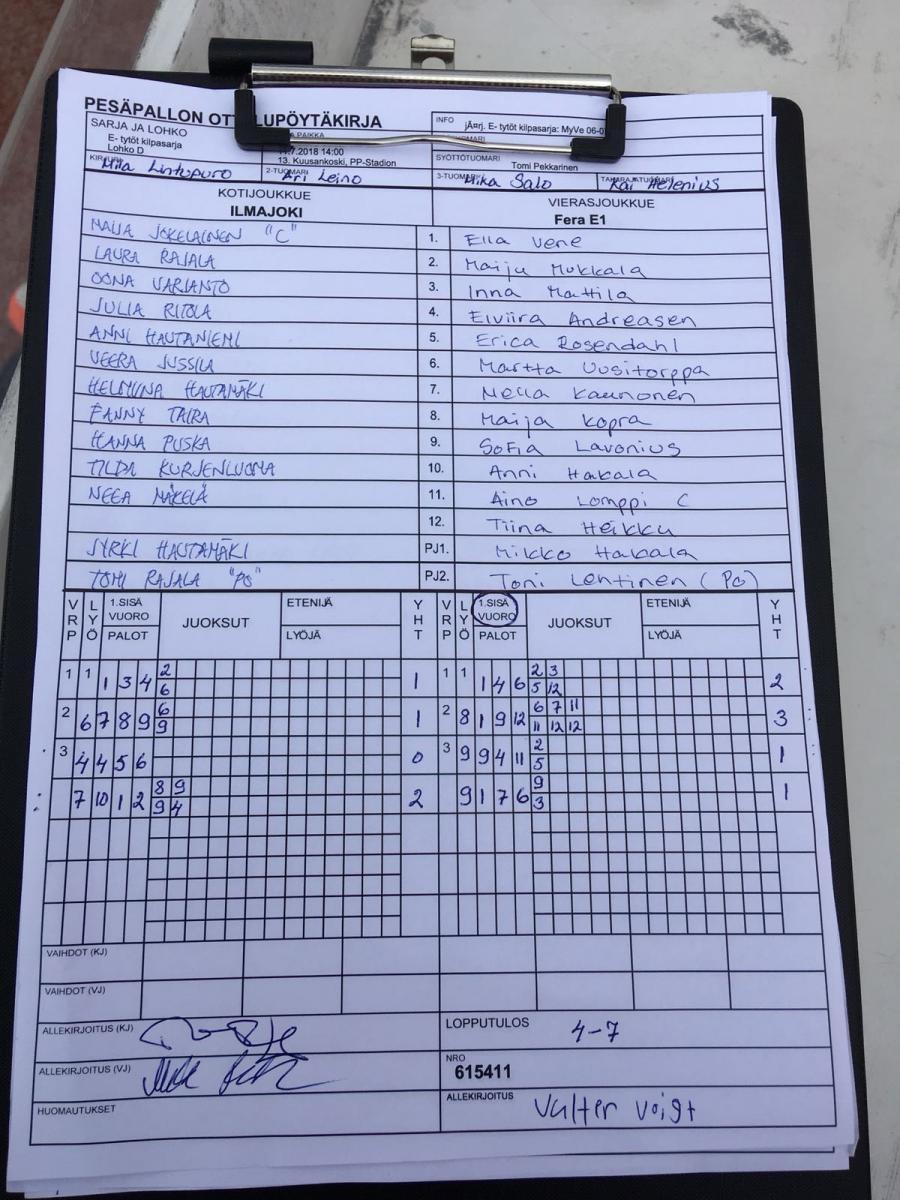 PESÄPALLON OTTELUPÖYTÄKIRJA
SARJA JA LOHKO
E- tytöt kilpasarja
Lohko D
PAIKKA
.7.2018 14:00
13. Kuusankoski, PP-Stadion
INFO
jÄ¤rj. E- tytöt kilpasarja: MyVe 06-0
SYÖTTÖTUOMARI
Tomi Pekkarinen
Mila Lintupuro
2-TUOMARI
Ari Leino
3-TUOMARI
Mika Salo
TAKARAJATUOMARI
Kai Helenius
KOTIJOUKKUE
ILMAJOKI
VIERASJOUKKUE
Fera E1
MAIJA JOKELAINEN "C" 1. Ella Vene
LAURA RAJALA 2. Maiju Mukkala
OONA VARIANTO 3. Inna Mattila
JULIA RITOLA 4. Elviira Andreasen
ANNI HAUTANIEMI 5. Erica Rosendahl
VEERA JUSSILA 6. Martta Uusitorppa
HELMIINA HAUTAMÄKI 7. Mella Kaunonen
FANNY TAIRA 8. Maija Kopra
HANNA PUSKA 9. Sofia Lavonius
TILDA KURJENLUOMA 10. Anni Hakala
NEEA MÄKELÄ 11. Aino Lomppi C
12. Tiina Heikku
JYRKI HAUTAMÄKI PJ1. Mikko Hakala
TOMI RAJALA "PO" PJ2. Toni Lehtinen (PO)
VRP LYÖ 1.SISÄ VUORO PALOT JUOKSUT ETENIJÄ LYÖJÄ YHT VRP LYÖ 1.SISÄ VUORO PALOT JUOKSUT ETENIJÄ LYÖJÄ YHT
1 1 1 3 4 2 1 1 1 1 4 6 2 3 2
6 5 12
2 6 7 8 9 6 1 2 8 1 9 12 6 7 11 3
9 11 12 12
3 4 4 5 6 0 3 9 9 4 11 2 1
5
7 10 1 2 8 9 2 9 1 7 6 9 1
9 4 3
VAIHDOT (KJ)
VAIHDOT (VJ)
ALLEKIRJOITUS (KJ)
LOPPUTULOS 4-7
ALLEKIRJOITUS (VJ)
NRO
615411
HUOMAUTUKSET
ALLEKIRJOITUS Valter Voigt